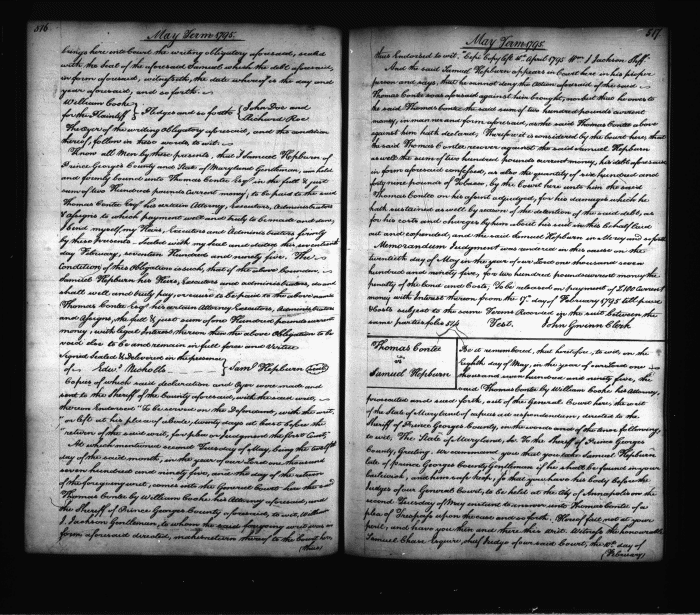 516
May Term 1795.
brings here into Court the writing obligatory aforesaid, sealed
with the Seal of the aforesaid Samuel which the debt aforesaid,
in form aforesaid, witnesseth, the date whereof is the day and
year aforesaid, and so forth.
William Cooke
for the Plaintiff
Pledges and so forth
John Doe and
Richard Roe
The Oyer of the writing obligatory aforesaid, and the condition
thereof, follow in these words to wit.
Know all Men by these presents, that I Samuel Hepburn of
Prince Georges County and State of Maryland Gentleman, am held
and firmly bound unto Thomas Contee Esqr. in the full & just
sum of two Hundred Pounds current money, to be paid to the said
Thomas Contee Esqr. his certain Attorney, Executors, Administrators
& Assigns to which payment well and truly to be made and done,
I bind myself, my Heirs, Executors and Administrators firmly
by these Presents. Sealed with my Seal and dated this seventh
day February, seventeen Hundred and ninety five. The
Condition of this Obligation is such, that if the above bounden
Samuel Hepburn his Heirs, Executors and administrators, do and
shall well and truly pay, or cause to be paid to the above named
Thomas Contee Esqr. his certain Attorney Executors, Administrators
and Assigns, the full & just sum of one Hundred pounds current
money, with legal Interest thereon then the above Obligation to be
void else to be and remain in full force and virtue
Signed Sealed & Delivered in the presence
of Edwd. Nicholls
Saml. Hepburn (Seal)
Copies of which said declaration and Oyer were made and
sent to the Sheriff of the County aforesaid, with the said writ,
thereon Endorsed "To be served on the Defendant, with the writ,
or left at his place of abode, twenty days at least before the
return of the said writ, for plea or Judgment the first Court"
At which mentioned second Tuesday of May, being the twelfth
day of the said month, in the year of our Lord one thousand
seven hundred and ninety five, and the day of the return
of the foregoing writ, comes into the General Court here, the said
Thomas Contee by William Cooke his Attorney aforesaid, and
the Sheriff of Prince Georges County aforesaid, to wit, William
I. Jackson Gentleman, to whom the said foregoing writ was in
form aforesaid directed, makes return thereof to the Court here,
(thus)
517
May Term 1795
thus Endorsed to wit. "Cepi Copy left 4th April 1795 Wm. I Jackson Shff."
And the said Samuel Hepburn appears in Court here in his proper
person and says, that he cannot deny the action aforesaid of the said
Thomas Contee as aforesaid against him brought, nor but that he owes to
the said Thomas Contee the said sum of two hundred pounds current
money, in manner and form aforesaid, as the said Thomas Contee above
against him hath declared; Therefore it is considered by the Court here, that
the said Thomas Contee recover against the said Samuel Hepburn
as well the sum of two hundred pounds current money, his debt aforesaid
in form aforesaid confessed, as also the quantity of six hundred and
forty nine pounds of Tobacco, by the Court here unto him the said
Thomas Contee on his assent adjudged, for his damages which he
hath sustained as well by occasion of the detention of the said debt, as
for his costs and charges by him about his suit in this behalf laid
out and expended, and the said Samuel Hepburn in Mercy and so forth
Memorandum Judgment was rendered in this cause on the
twentieth day of May in the year of our Lord one thousand seven
hundred and ninety five, for two hundred pounds current money the
penalty of the bond and Costs, To be released on payment of £100 current
money with Interest thereon from the 7th. day of February 1795 till paid
& Costs subject to the same Terms Reserved in the suit between the
same parties folio 514
Test. John Gwinn Clerk
Thomas Contee
vs
Samuel Hepburn
Be it remembered, that heretofore, to wit, on the
Eighth day of May, in the year of our Lord one
thousand seven hundred and ninety five, the
said Thomas Contee by William Cooke his Attorney,
prosecuted and sued forth, out of the General Court here, the writ
of the State of Maryland of capias ad respondendum, directed to the
Sheriff of Prince Georges County, in the words and of the tenor following,
to wit, The State of Maryland, &c. To the Sheriff of Prince Georges
County, Greeting. We command you that you take Samuel Hepburn
late of Prince Georges County Gentleman if he shall be found in your
bailiwick, and him safe keep, so that you have his body before the
Judges of our General Court, to be held at the City of Annapolis on the
second Tuesday of May instant to answer unto Thomas Contee of a
plea of Trespass upon the case and so forth. Hereof fail not at your
peril, and have you then and there this writ. Witness the honourable
Samuel Chase Esquire, chief Judge of our said Court, the 10th. day of
(February)